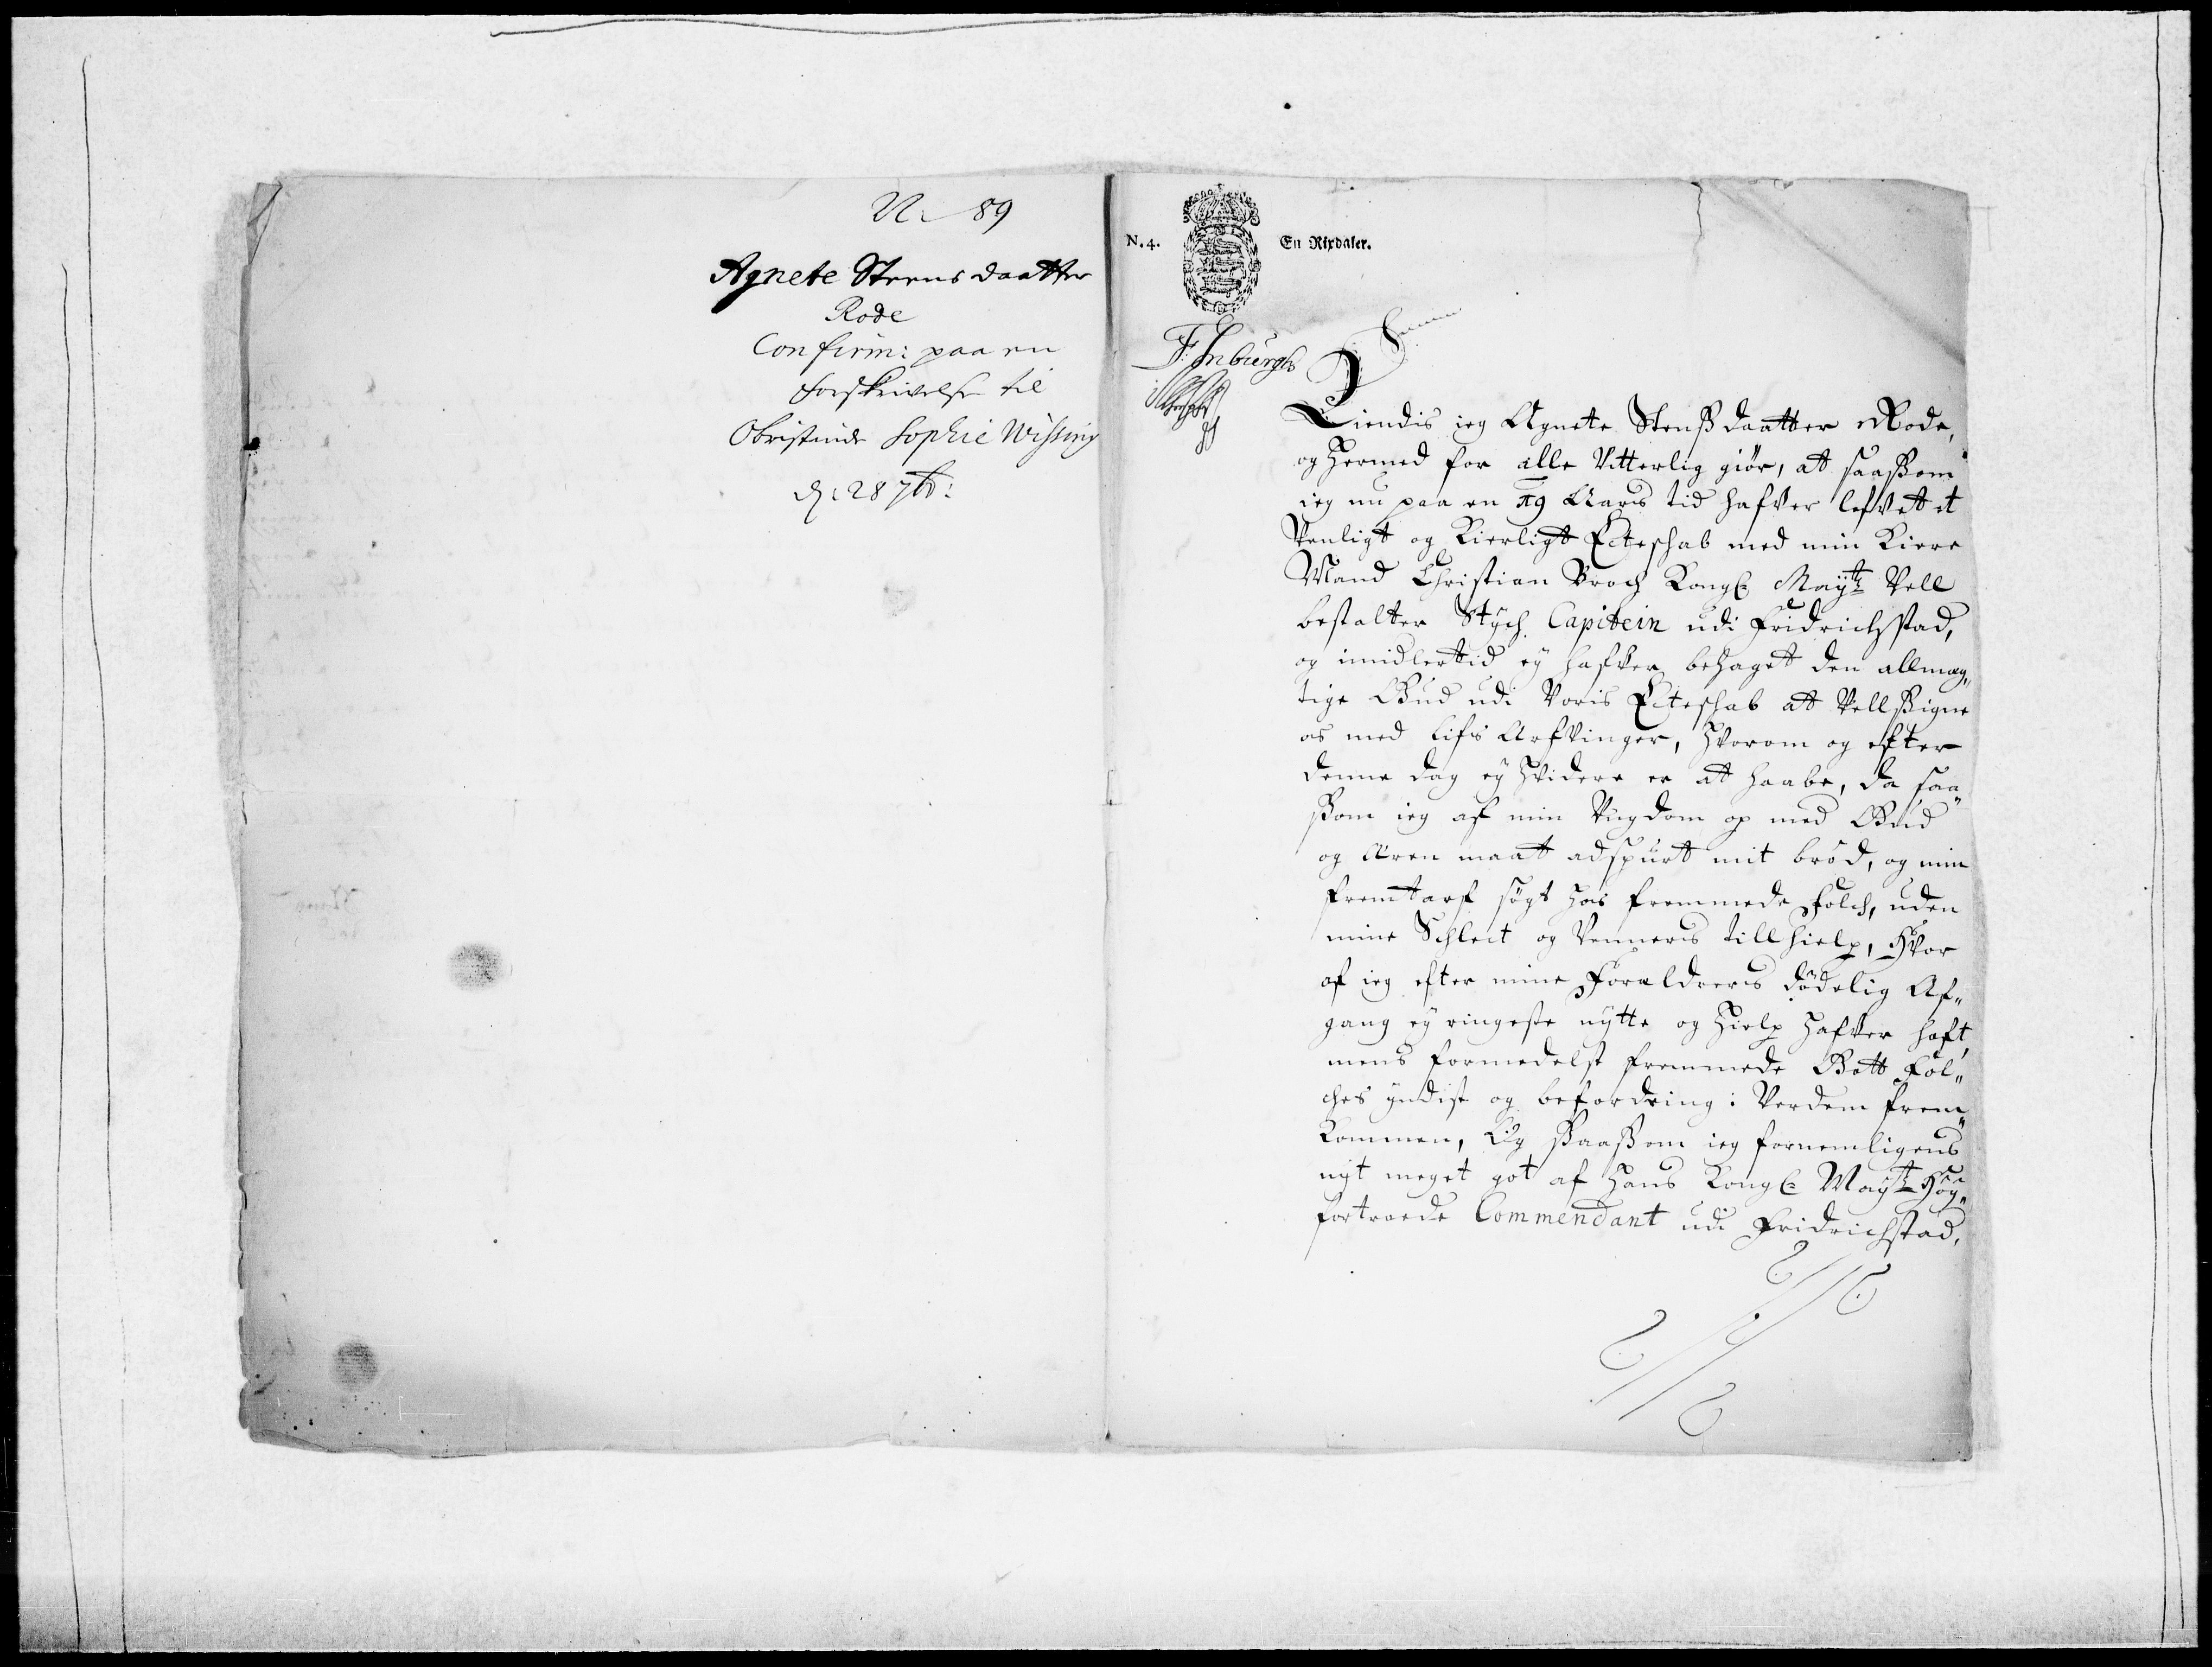 N. 89
Agnete Steensdaatter
Rode
Confirm: paa en
forskrivelse til
Obristinde Sophie Wissing
d: 28 7br:
N. 4.
En Rixdaler.
Kiendis ieg Agnete Stenssdaatter Rode,
og hermed for alle Vitterlig giør, at saassom
ieg nu paa en 19 Aars tid hafver lefvet et
Venligt og Kierligt Ecteschab med min Kiere
Mand Christian Broch Kongl: Mayts Vell
bestalter Stych Capitein udi Fridrichstad,
og imidlertid ey hafver behaget den allmæg„
tige Gud udi Voris Ecteschab at Vellssigne
os med Lifs Arfvinger, hvorom og efter
denne dag ey Videre er at haabe, da saa„
ssom ieg af min Ungdom op med Gud
og Æren maat adspurt mit brød, og min
fremtarf søgt hos fremmede Folch, uden
mine Schlect og Venners tillhielp, Hvor
af ieg efter mine Foraldrers dødelig Af„
gang ey ringeste nytte og hielp hafver haft,
mens formedelst fremmede Gott Fol„
ches yndist og befordring i Verden frem„
kommen, Og ssaassom ieg fornemligens
nyt meget got af Hans Kongl: Mayts Høy„
fortroede Commendant udi Fridrichstad,